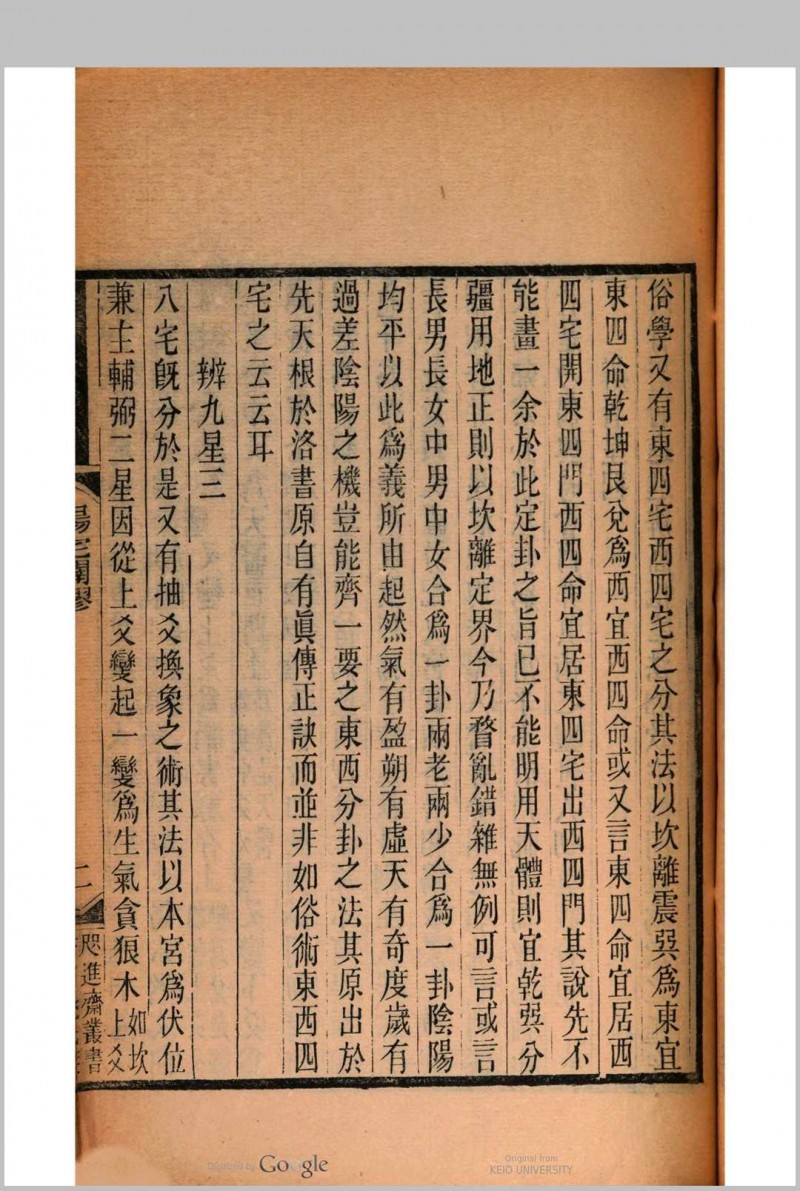 俗學又有東四宅西四宅之分其法以坎離震巽爲東宜
東四命乾坤艮兌爲西宜西四命或又言東四命宜居西
四宅開東四門西四命宜居東四宅出西四門其說先不
能畫一余於此定卦之旨已不能明用天體則宜乾巽分
疆用地正則以坎離定界今乃瞀亂錯雜無例可言或言
長男長女中男中女合爲一卦兩老兩少合爲一卦陰陽
均平以此爲義所由起然氣有盈朔有虛天有奇度歲有
過差陰陽之機豈能齊一要之東西分卦之法其原出於
先天根於洛書原自有眞傳正訣而並非如俗術東西四
宅之云云耳
辨九星三
八宅旣分於是又有抽爻換象之術其法以本宮爲伏位
兼主輔弼二星因從上爻變起一變爲生氣貪狼木如坎上爻
陽宅闢謬
二
咫進齋叢書
Google
Original from
KEIO UNIVERSITY